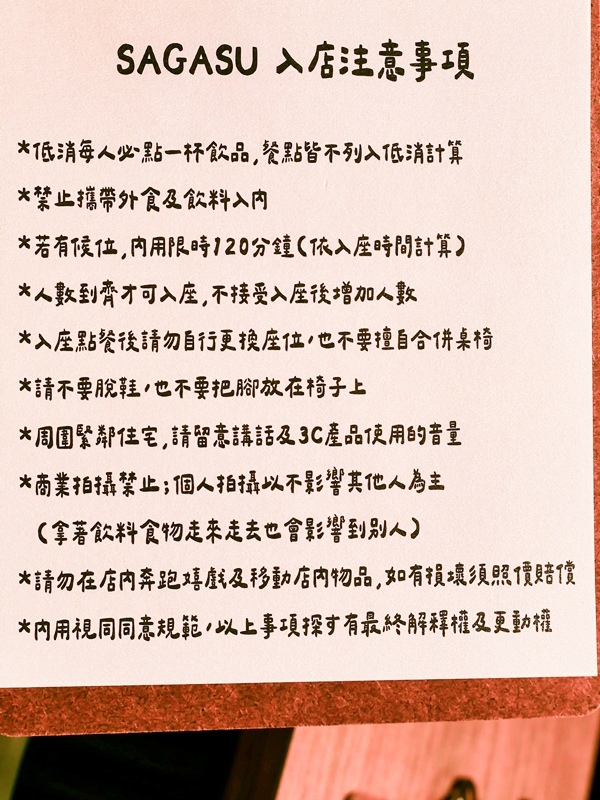 SAGASU 入店注意事項
*低消每人必點一杯飲品,餐點皆不列入低消計算
*禁止攜帶外食及飲料入內
*若有候位,內用限時120分鐘(依入座時間計算)
*人數到齊才可入座,不接受入座後增加人數
*入座點餐後請勿自行更換座位,也不要擅自合併桌椅
*請不要脫鞋,也不要把腳放在椅子上
*周圍緊鄰住宅,請留意講話及3C產品使用的音量
*商業拍攝禁止;個人拍攝以不影響其他人為主
(拿著飲料食物走來走去也會影響到別人)
*請勿在店內奔跑嬉戲及移動店內物品,如有損壞須照價賠償
*內用視同同意規範,以上事項探す有最終解釋權及更動權